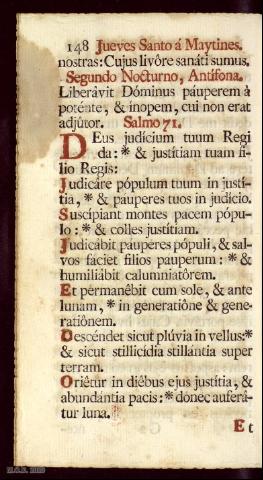 148 Jueves Santo á Maytines.
nostras: Cujus livôre sanáti sumus.
Segundo Nocturno, Antifona.
Liberâvit Dóminus páuperem à
poténte, & ínopem, cui non erat
adjûtor. Salmo 71.
DEus judícium tuum Regi
da: * & justítiam tuam fi-
lio Regis:
Judicáre pópulum tuum in justí-
tia, * & pauperes tuos in judício.
Suscípiant montes pacem pópu-
lo: * & colles justítiam.
Judicâbit páuperes pópuli, & sal-
vos faciet filios pauperum: * &
humiliâbit calumniatôrem.
Et permanêbit cum sole, & ante
lunam, * in generatiône & gene-
ratiônem.
Descéndet sicut plúvia in vellus: *
& sicut stillicídia stillántia super
terram.
Oriêtur in diébus ejus justítia, &
abundántia pacis: * donec auferâ-
tur luna.
Et